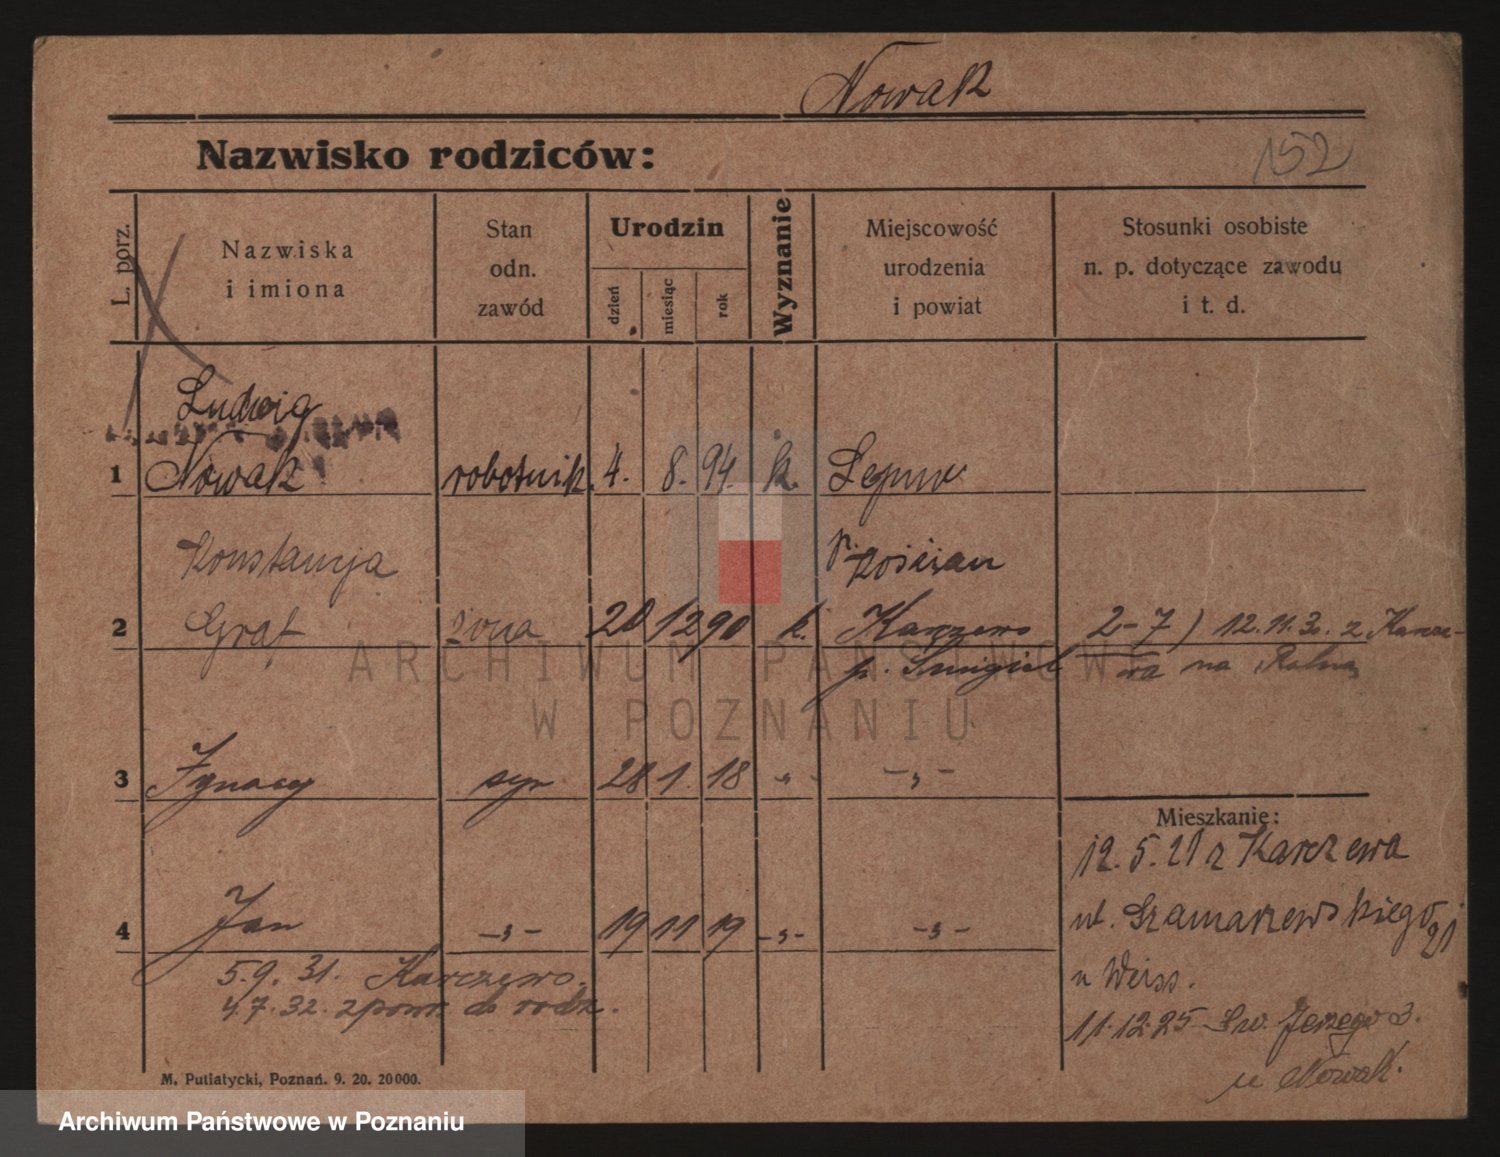 Nowak
Nazwisko rodziców:
152
L. porz.
Nazwiska
i imiona
Stan
odn.
zawód
Urodzin
dzień
miesiąc
rok
Wyznanie
Miejscowość
urodzenia
i powiat
Stosunki osobiste
n. p. dotyczące zawodu
i t. d.
Ludwig
1 Nowak robotnik. 4. 8. 94. k.
p. Kościan
Konstancja
2 Grąt żona 20 12 90 k. Karczewo 2-7) 12.11.3 . z Karcze-
p. Smigiel wa na
3 Ignacy syn 28 1. 18 -„- -„-
Mieszkanie:
12.5.21 z Karczewa
4 Jan -„- 19 11 19 -„- -„-
ul. Szamarzewskiego 21
u Weiss.
5.9.31. Karczewo.
4.7.32. z powr. do rodz.
11.12.25 Św. Jerzego 3.
u Nowak.
M. Putiatycki, Poznań. 9. 20. 20000.
ARCHIWUM PAŃSTWOW
W POZNANIU
Archiwum Państwowe w Poznaniu